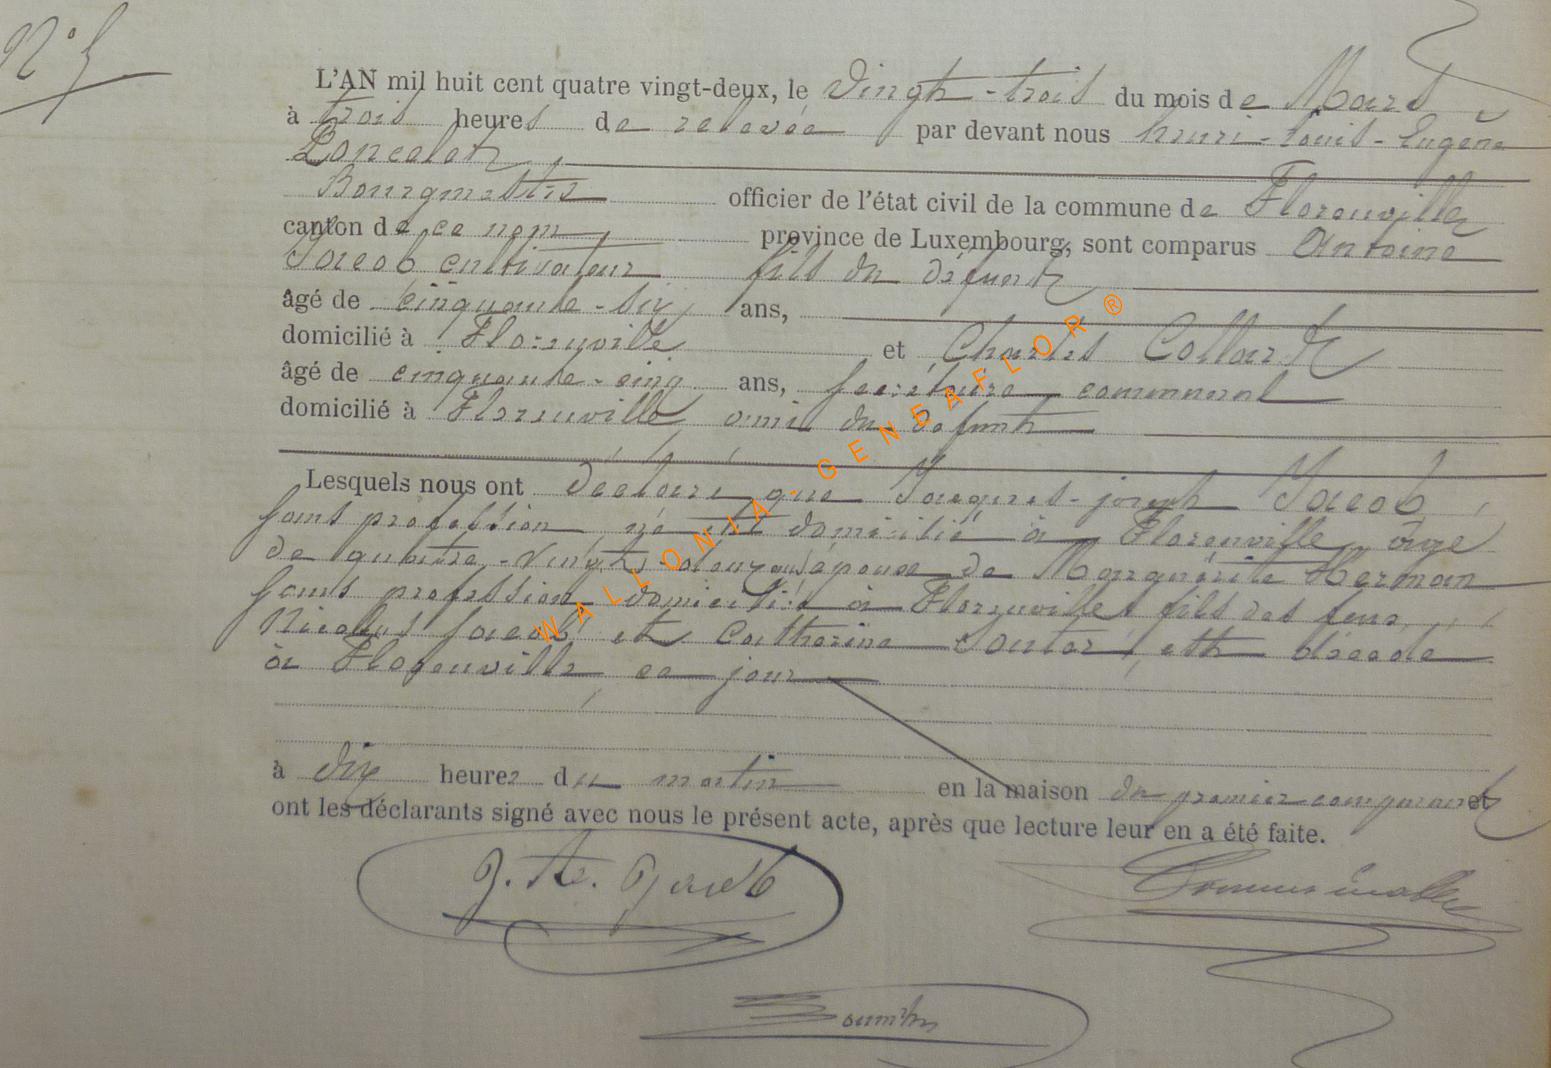 N° 5
L'AN mil huit cent quatre vingt-deux, le vingt-trois du mois de Mars
à trois heures de relevée par devant nous henri-Louis-Eugène
Poncelet
Bourgmestre officier de l'état civil de la commune de Florenville
canton de ce nom province de Luxembourg, sont comparus Antoine
Jacob cultivateur fils du défunt
âgé de cinquante-six ans,
domicilié à Florenville et Charles Collard
âgé de cinquante-cinq ans, secrétaire communal
domicilié à Florenville ami du défunt
Lesquels nous ont déclaré que Jacques-joseph Jacob,
sans profession né et domicilié à Florenville âgé
de quatre-vingt-douze ans époux de Marguérite Herman
sans profession domiciliée à Florenville, fils des feus
Nicolas Jacob et Catherine est décédé
à Florenville ce jour
à dix heures du matin en la maison du premier comparant et
ont les déclarants signé avec nous le présent acte, après que lecture leur en a été faite.
J. A. Jacob
WALLONIA-GENEAFLOR ®